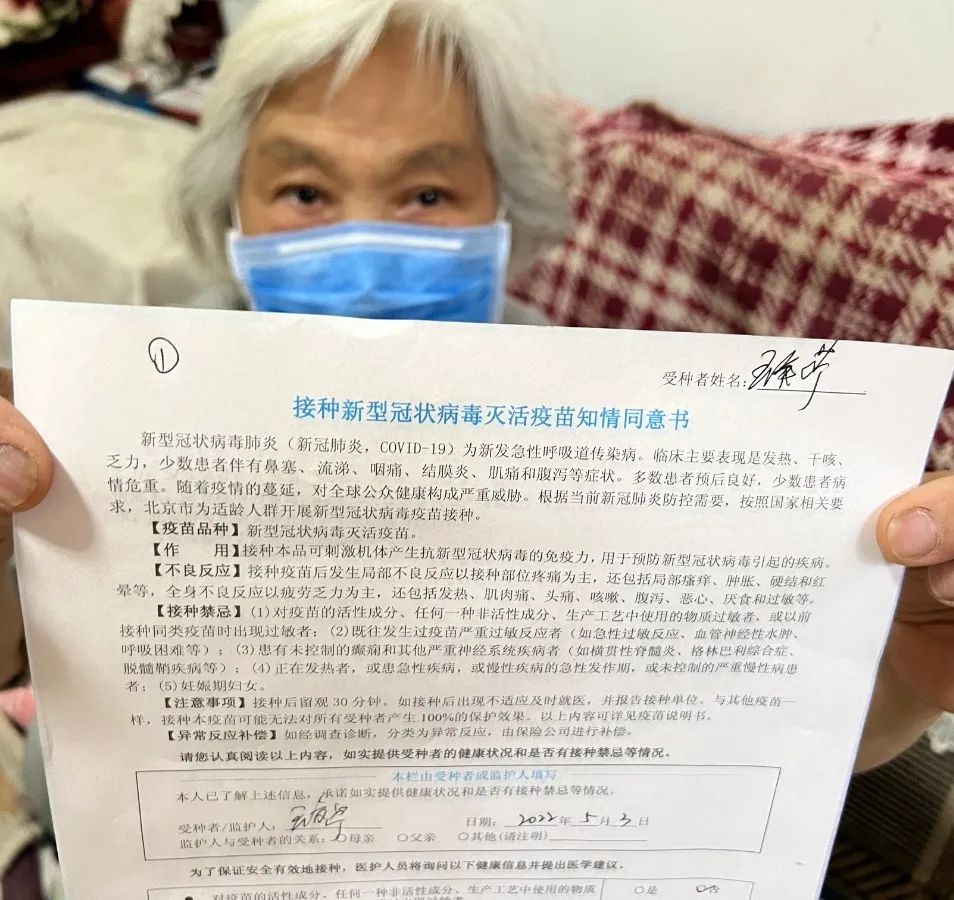 ①
受种者姓名:
接种新型冠状病毒灭活疫苗知情同意书
新型冠状病毒肺炎（新冠肺炎，COVID-19）为新发急性呼吸道传染病。临床主要表现是发热、干咳、
乏力，少数患者伴有鼻塞、流涕、咽痛、结膜炎、肌痛和腹泻等症状。多数患者预后良好，少数患者病
情危重。随着疫情的蔓延，对全球公众健康构成严重威胁。根据当前新冠肺炎防控需要，按照国家相关要
求，北京市为适龄人群开展新型冠状病毒疫苗接种。
【疫苗品种】新型冠状病毒灭活疫苗。
【作 用】接种本品可刺激机体产生抗新型冠状病毒的免疫力，用于预防新型冠状病毒引起的疾病。
【不良反应】接种疫苗后发生局部不良反应以接种部位疼痛为主，还包括局部瘙痒、肿胀、硬结和红
晕等，全身不良反应以疲劳乏力为主，还包括发热、肌肉痛、头痛、咳嗽、腹泻、恶心、厌食和过敏等。
【接种禁忌】(1)对疫苗的活性成分、任何一种非活性成分、生产工艺中使用的物质过敏者，或以前
接种同类疫苗时出现过敏者；(2)既往发生过疫苗严重过敏反应者（如急性过敏反应、血管神经性水肿、
呼吸困难等）；(3)患有未控制的癫痫和其他严重神经系统疾病者（如横贯性脊髓炎、格林巴利综合症、
脱髓鞘疾病等）；(4)正在发热者，或患急性疾病，或慢性疾病的急性发作期，或未控制的严重慢性病患
者；(5)妊娠期妇女。
【注意事项】接种后留观30分钟。如接种后出现不适应及时就医，并报告接种单位。与其他疫苗一
样，接种本疫苗可能无法对所有受种者产生100%的保护效果。以上内容可详见疫苗说明书。
【异常反应补偿】如经调查诊断，分类为异常反应，由保险公司进行补偿。
请您认真阅读以上内容，如实提供受种者的健康状况和是否有接种禁忌等情况。
本栏由受种者或监护人填写
本人已了解上述信息，承诺如实提供健康状况和是否有接种禁忌等情况。
受种者/监护人： 日期：2022年5月3日
监护人与受种者的关系：○母亲 ○父亲 ○其他(请注明)
为了保证安全有效地接种，医护人员将询问以下健康信息并提出医学建议。
对疫苗的活性成分、任何一种非活性成分、生产工艺中使用的物质 ○是 ○否